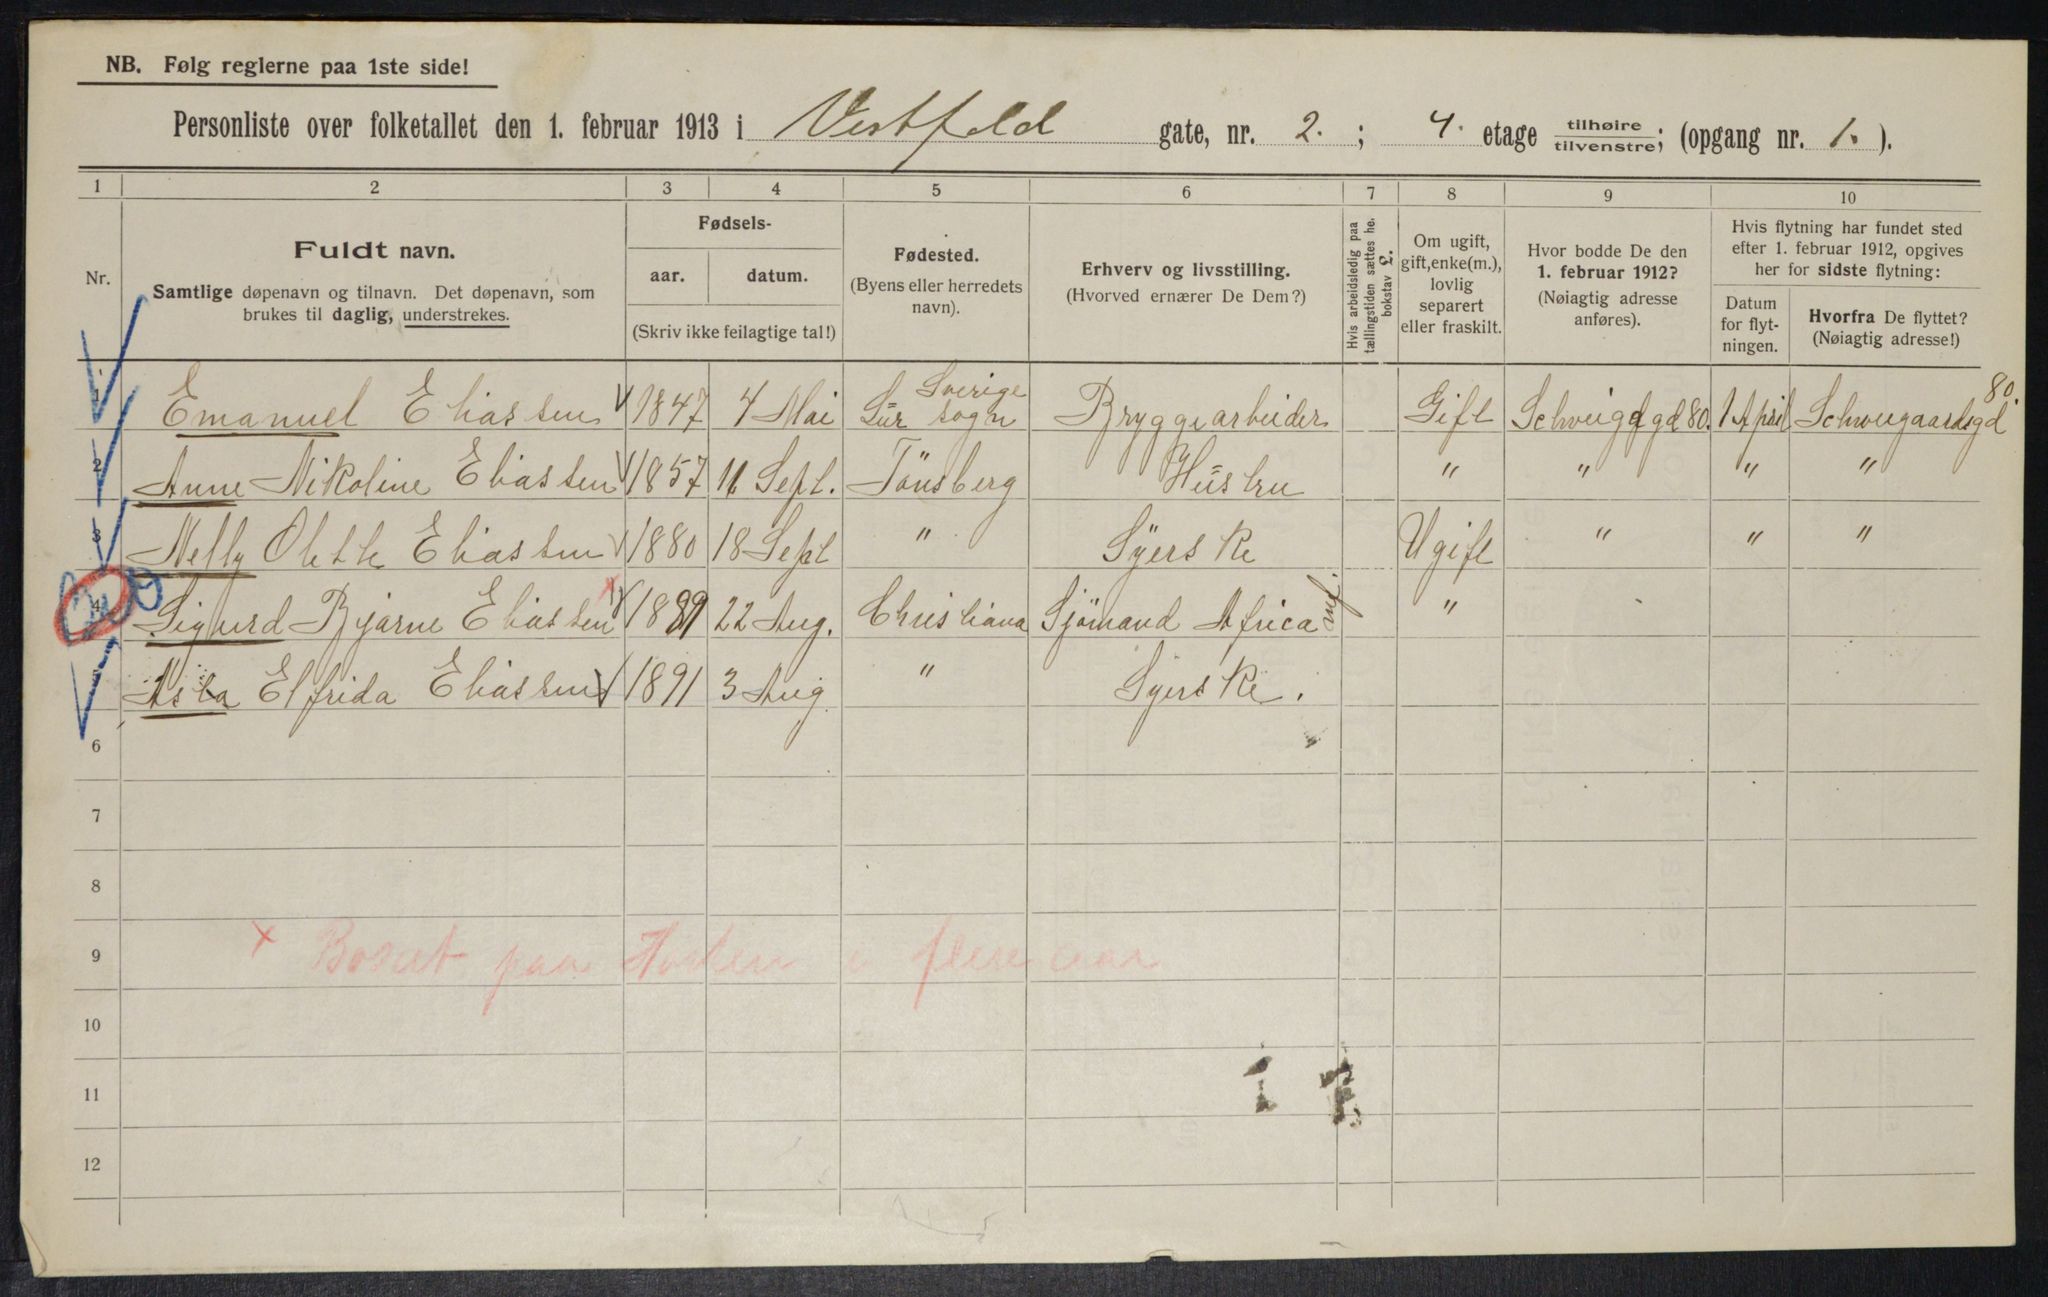 NB. Følg reglerne paa 1ste side!
Personliste over folketallet den 1. februar 1913 i Vestfold gate, nr. 2. ; 4. etage tilhøire/tilvenstre; (opgang nr. 1. ).
1 2 3 4 5 6 7 8 9 10
Nr.
Fuldt navn.
Samtlige døpenavn og tilnavn. Det døpenavn, som
brukes til daglig, understrekes.
Fødsels-
aar. datum.
(Skriv ikke feilagtige tal!)
Fødested.
(Byens eller herredets
navn).
Erhverv og livsstilling.
(Hvorved ernærer De Dem?)
Hvis arbeidsledig paa
tællingstiden sættes her
bokstav L.
Om ugift,
gift, enke(m.),
lovlig
separert
eller fraskilt.
Hvor bodde De den
1. februar 1912?
(Nøiagtig adresse
anføres).
Hvis flytning har fundet sted
efter 1. februar 1912, opgives
her for sidste flytning:
Datum
for flyt-
ningen.
Hvorfra De flyttet?
(Nøiagtig adresse!)
Sverige 80
1 Emanuel Eliassen 1847 4 Mai Sür sogn Bryggearbeider Gift Schveigdgd 80. 1 April Schweigaardsgd
2 Anne Nikoline Eliassen 1857 11 Sept. Tönsberg Hüstru " " " "
3 Nelly Olette Eliassen 1880 18 Sept " Syerske Ugift " " "
4 Sigurd Bjarne Eliassen 1889 22 Aug. Christiana Sjömand Africa "
5 Asta Elfrida Eliassen 1891 3 Aug " Syerske.
6
7
8
9 x Bosat paa flere aar
10
11
12